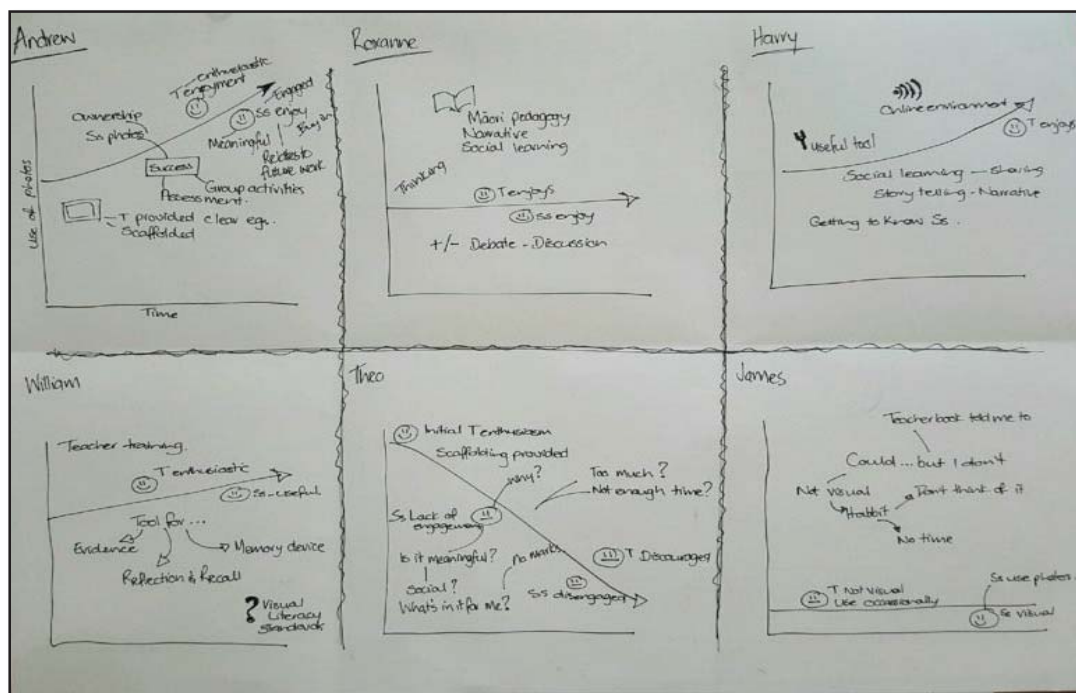 Andrew
enthusiastic
T enjoyment
Engaged
Ss enjoy
Buy in
Ownership
Ss photos
Meaningful
Relates to
future work
Success
Group activities
Assessment.
T provided clear egs.
Scaffolded
Use of photos
Time
Roxanne
Māori pedagogy
Narrative
Social learning
Thinking
T enjoys
Ss enjoy
+/- Debate - Discussion
Harry
Online environment
T enjoys
useful tool
Social learning — sharing
Story telling - Narrative
Getting to know Ss.
William
Teacher training.
T enthusiastic
Ss - useful
Tool for ...
Evidence
Memory device
Reflection & Recall
? Visual
Literacy
Standards
Theo
Initial T enthusiasm
Scaffolding provided
Why?
Too much?
Not enough time?
Ss Lack of
engagement
Is it meaningful?
No marks.
Social?
What's in it for me?
T Discouraged
Ss disengaged
James
Teacher book told me to
Could ... but I don't
Not visual
Habbit
Don't think of it
No time
T Not Visual
Use occasionally
Ss use photos.
Ss visual